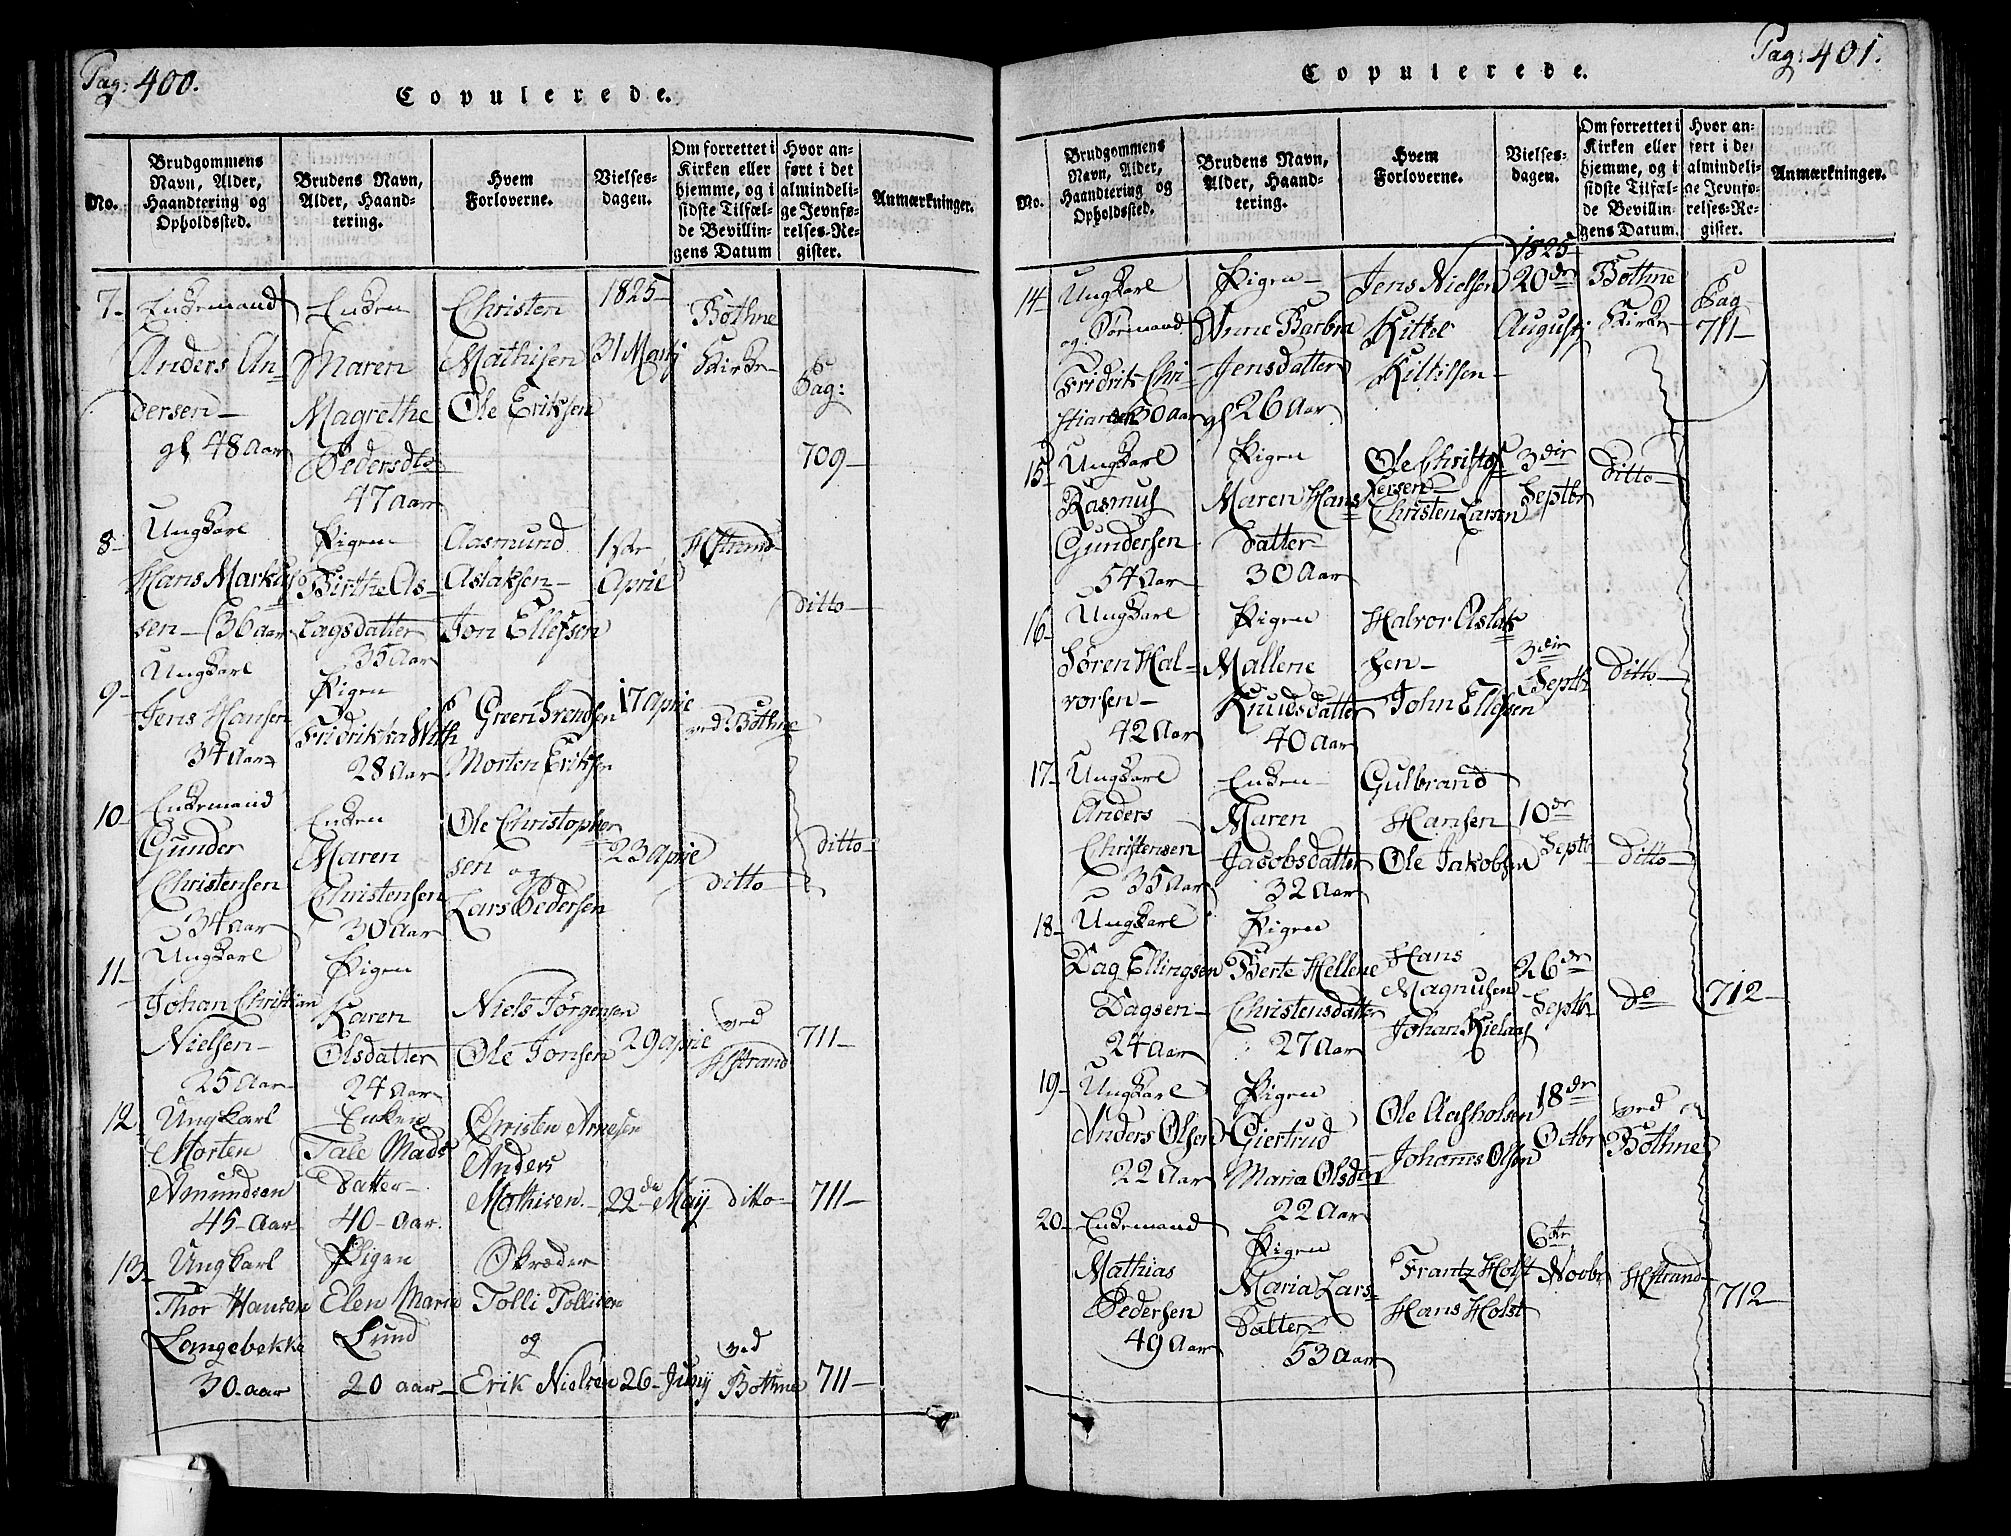 Pag: 400.
Copulerede.
No.
Brudgommens
Navn, Alder,
Haandtering og
Opholdssted.
Brudens Navn,
Alder, Haand-
tering.
Hvem
Forloverne.
Vielses-
dagen.
Om forrettet i
Kirken eller
hjemme, og i
sidste Tilfæl-
de Bevillin-
gens Datum
Hvor an-
ført i det
almindeli-
ge Jevnfø-
relses-Re-
gister.
Anmærkninger.
7-
Enkemand
Anders An-
dersen-
gl 48 Aar
Enken
Maren
Magrethe
Pedersdtr
47 aar
Christen
Mathisen
Ole Eriksen
1825-
31 Martj
Bothne
Kirke-
Pag:
709-
8-
Ungkarl
Hans Markus
sen- (36 aar
Pigen
Birthe As-
lagsdatter
35 Aar
Aasmund
Aslaksen-
Jon Ellefsen
1ste
April
Hstrand
ditto-
9-
Ungkarl
Jens Hansen
34 Aar
Pigen
Fridrikka With
28 Aar
Green Svendsen
Morten Eriksen
17 April
ved Bothne
10-
Enkemand
Gunder
Christensen
34 Aar
Enken
Maren
Christensen
30 Aar
Ole Christopher
sen og
Lars Pedersen
23 April
ditto-
ditto-
11-
Ungkarl
Johan Christian
Nielsen-
25 Aar-
Pigen
Karen
Olsdatter
24 Aar-
Niels Jørgensen
Ole Jonsen
29 April
ved
Hstrand
711-
12.
Ungkarl
Morten
Amundsen
45- Aar
Enken
Tale Mads
datter-
40- Aar.
Christen Arnesen
Anders
Mathisen.-
22de May
ditto-
711-
13-
Ungkarl
Thor Hansen
Langebekke
30- aar
Pigen
Elen Marie
Lund
20 aar-
Skræder
Tolli Tollisen
og
Erik Nielsen
26- Juny
ved
Bothne
711-
Pag: 401.
Copulerede.
No.
Brudgommens
Navn, Alder,
Haandtering og
Opholdssted.
Brudens Navn,
Alder, Haand-
tering.
Hvem
Forloverne.
Vielses-
dagen.
Om forrettet i
Kirken eller
hjemme, og i
sidste Tilfæl-
de Bevillin-
gens Datum.
Hvor an-
ført i det
almindeli-
ge Jevnfø-
relses-Re-
gister.
Anmærkninger.
14-
Ungkarl
og Sørmand
Fridrik Chri-
stiansen 30 Aar
Pigen
Anne Barbra
Jensdatter
gl 26 Aar
Jens Nielsen
Kittel
Kittilsen-
1825-
20de
August
Bothne
Kirke-
Pag-
711-
15-
Ungkarl
Rasmus
Gundersen
54 Aar
Pigen
Maren Hans
datter-
30 Aar
Ole Christof
fersen-
Christen Larsen
3die
Septbr
ditto-
16-
Ungkarl
Søren Hal-
vorsen-
42 Aar
Pigen
Mallene
Knudsdatter
40 Aar
Halvor Aslak
sen-
John Ellefsen
3die
Septbr
ditto-
17-
Ungkarl
Anders
Christensen
35 Aar
Enken-
Maren
Jacobsdatter
32 Aar
Gulbrand
Hansen
Ole Jakobsen
10de
Septb
ditto-
18-
Ungkarl
Dag Ellingsen
Dagsen-
24 Aar
Pigen
Berte Hellene
Christensdatter
27 Aar
Hans
Magnusen
Johan Kielas
26de
Septbr
do
712-
19-
Ungkarl
Anders Olsen
22 Aar
Pigen
Giertrud
Maria Olsdtr
22 Aar
Ole Aasholsen
Johannes Olsen
18de
Octbr
ved
Bothne
20-
Enkemand
Mathias
Pedersen
49 Aar
Pigen
Maria Lars-
datter-
53 Aar
Frantz Holst
Hans Holst
6te
Novbr
Hstrand-
712-